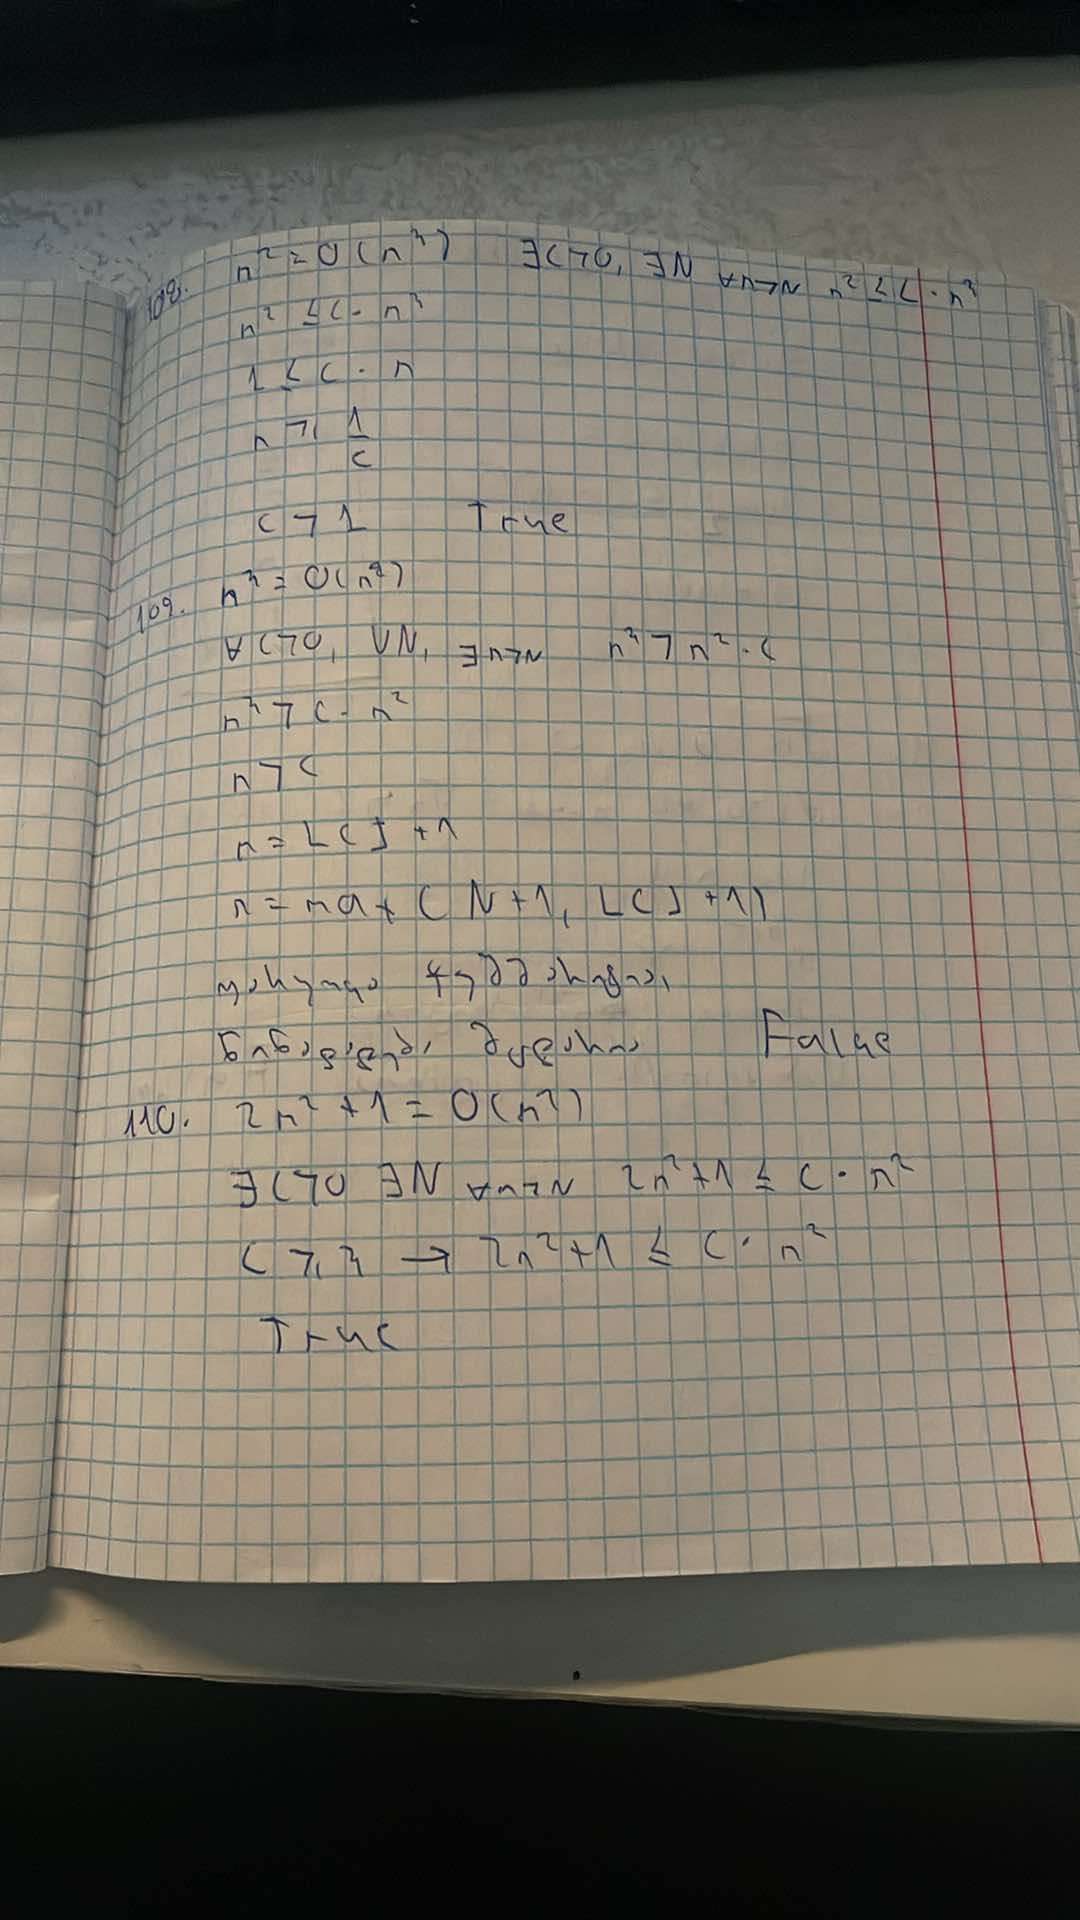 108. n² = O(n³) ∃C>0, ∃N ∀n>N n² ≤ C · n³
n² ≤ C · n³
1 ≤ C · n
n ≥ 1/C
C > 1 True
109. n³ = O(n²)
∀C>0, ∀N, ∃n>N n³ > n² · C
n³ > C · n²
n > C
n = ⌊C⌋ + 1
n = max (N+1, ⌊C⌋ + 1)
False
110. 2n² + 1 = O(n²)
∃C>0 ∃N ∀n>N 2n²+1 ≤ C · n²
C ≥ 3 → 2n²+1 ≤ C · n²
True